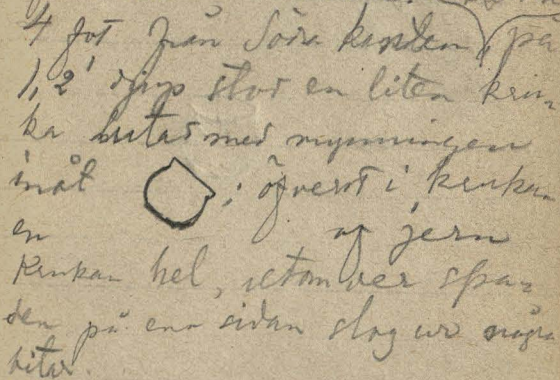 4 fot från Södra kanten, på
1,2' djup stod en liten kru-
ka lutad med mynningen
inåt ; öfverst i kruka-
en af jern
Krukan hel, utom der spa-
den på ena sidan slog ur några
bitar.